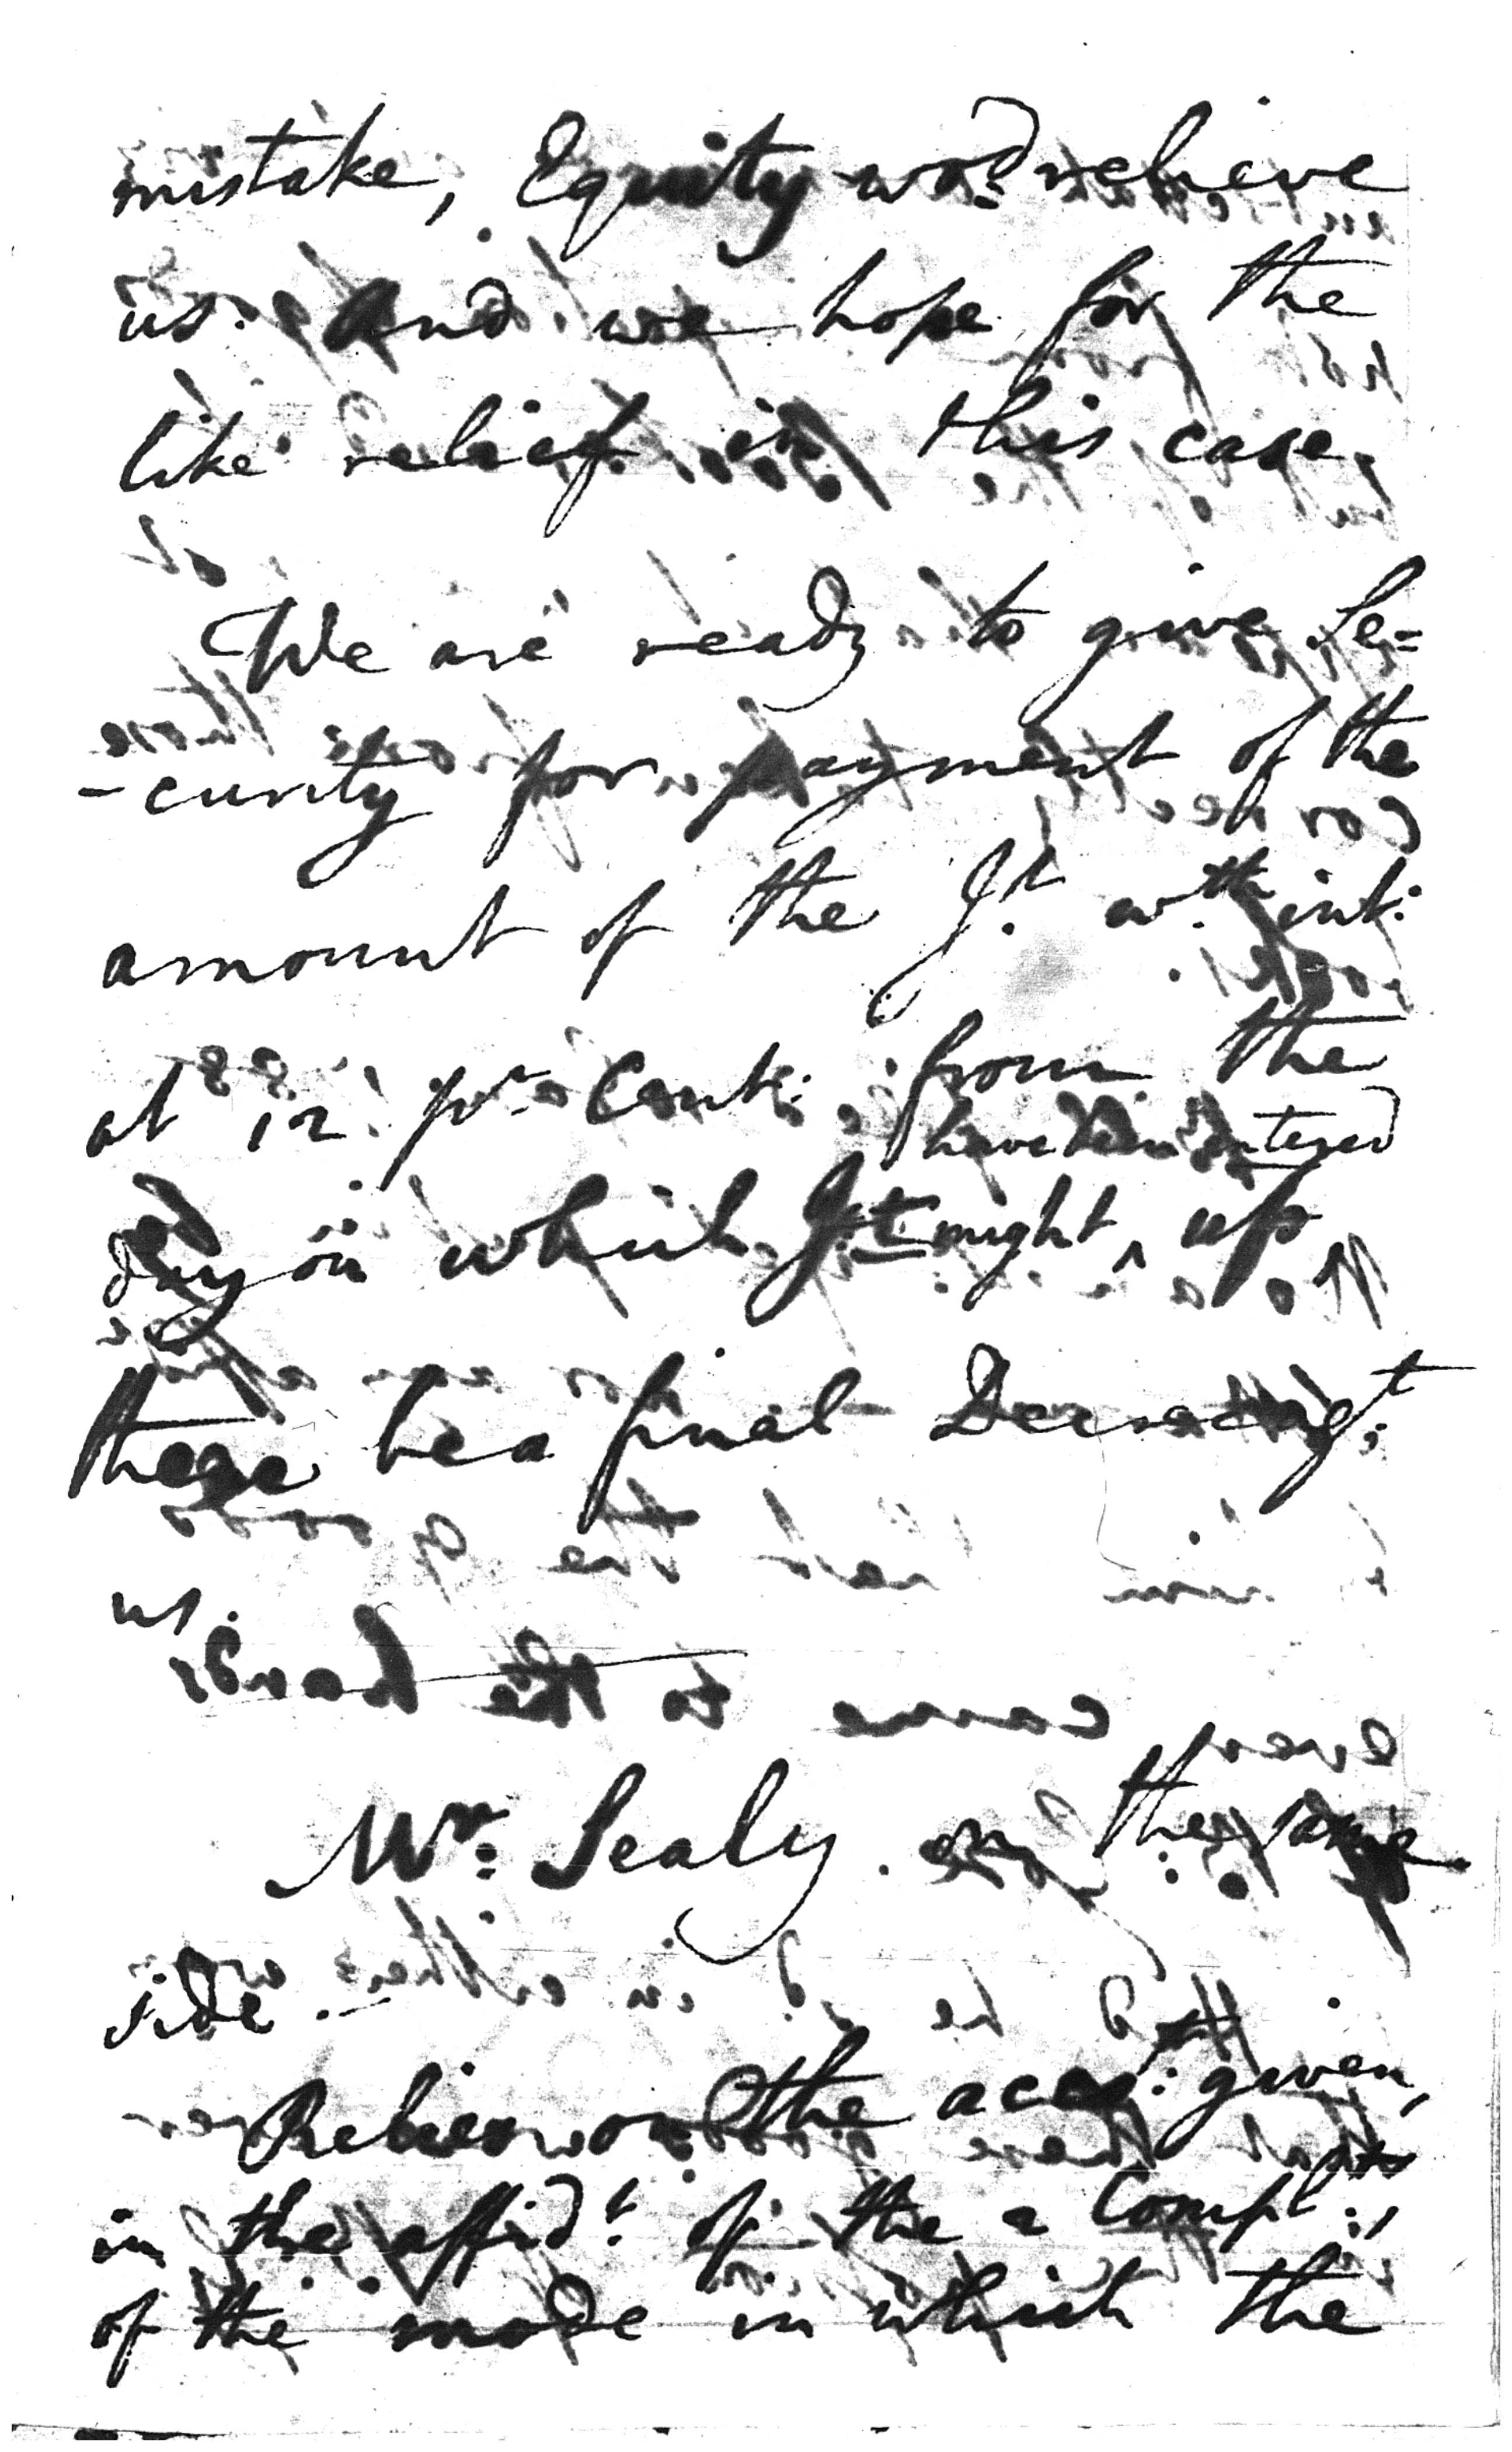 mistake, Equity wod relieve
us. And we hope for the
like relief in this case.
We are ready to give Se=
-curity for payment of the
amount of the Jt. wth. int:
at 12 pr Cent: from the
have been entered
day on which Jt might ^ up
there be a final Decree agt
us.
Mr: Sealy. on the same
side.—
Relies on the acct: given,
in the affidt: of the 2 Complts:,
of the mode in which the